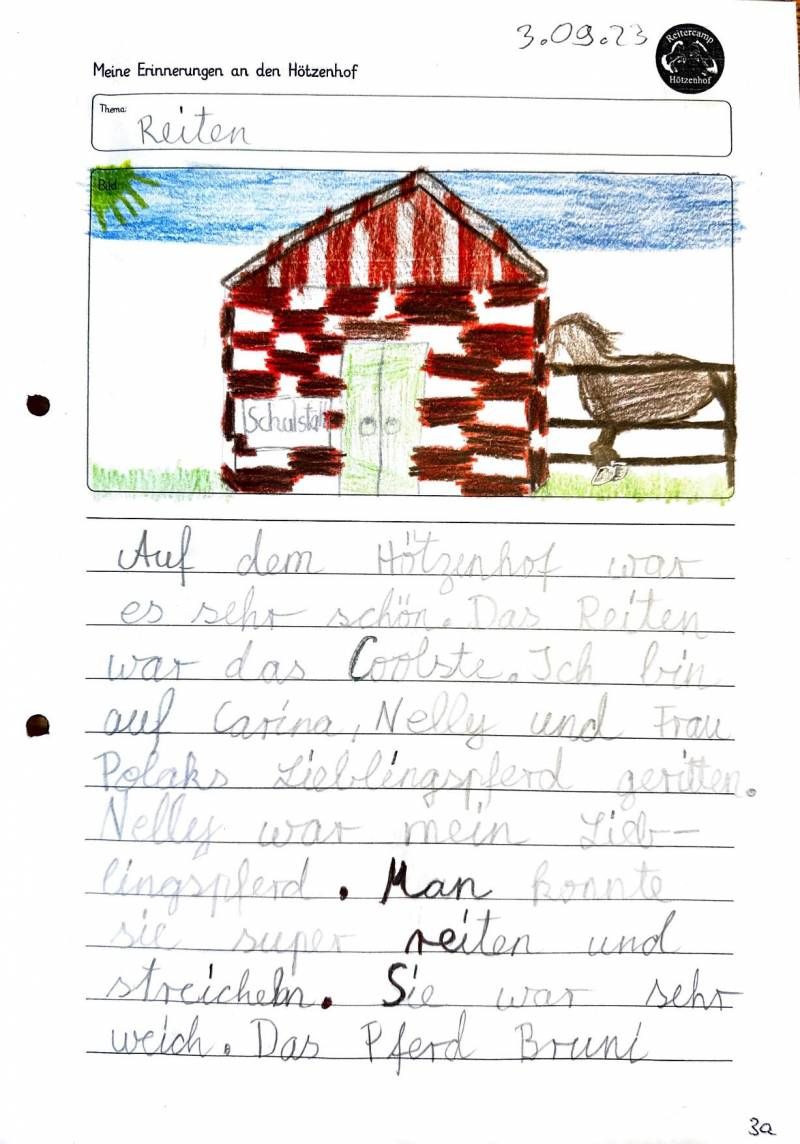 3.09.23
Reitercamp
Hötzenhof
Meine Erinnerungen an den Hötzenhof
Thema:
Reiten
Bild:
Schulstall
Auf dem Hötzenhof war
es sehr schön. Das Reiten
war das Coolste. Ich bin
auf Carina, Nelly und Frau
Polaks Lieblingspferd geritten.
Nelly war mein Lieb-
lingspferd. Man konnte
sie super reiten und
streicheln. Sie war sehr
weich. Das Pferd Bruni
3a